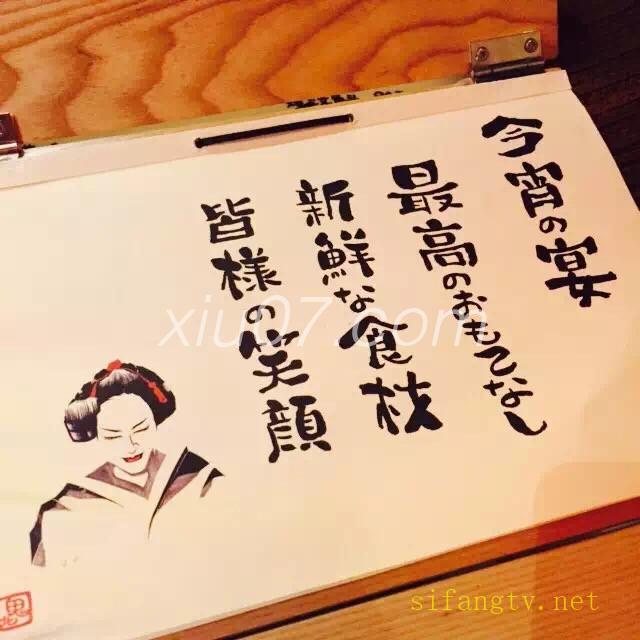 今宵の宴
最高のおもてなし
新鮮な食材
皆様の笑顔
xiu07.com
sifangtv.net